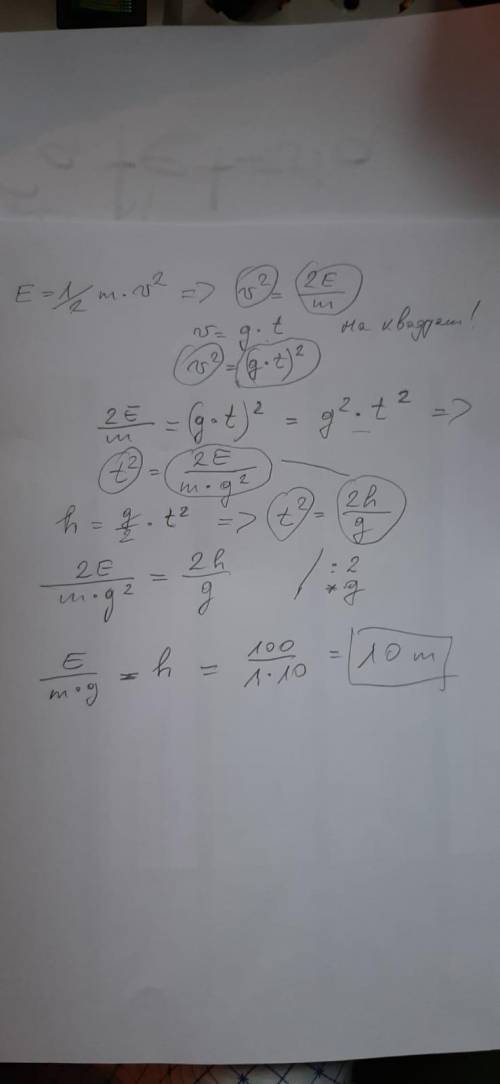 E = 1/2 m · v² => v² = 2E/m
v = g · t на квадрат!
v² = (g · t)²
2E/m = (g · t)² = g² · t² =>
t² = 2E/(m · g²)
h = g/2 · t² => t² = 2h/g
2E/(m · g²) = 2h/g / : 2 * g
E/(m · g) = h = 100/(1 · 10) = 10 m